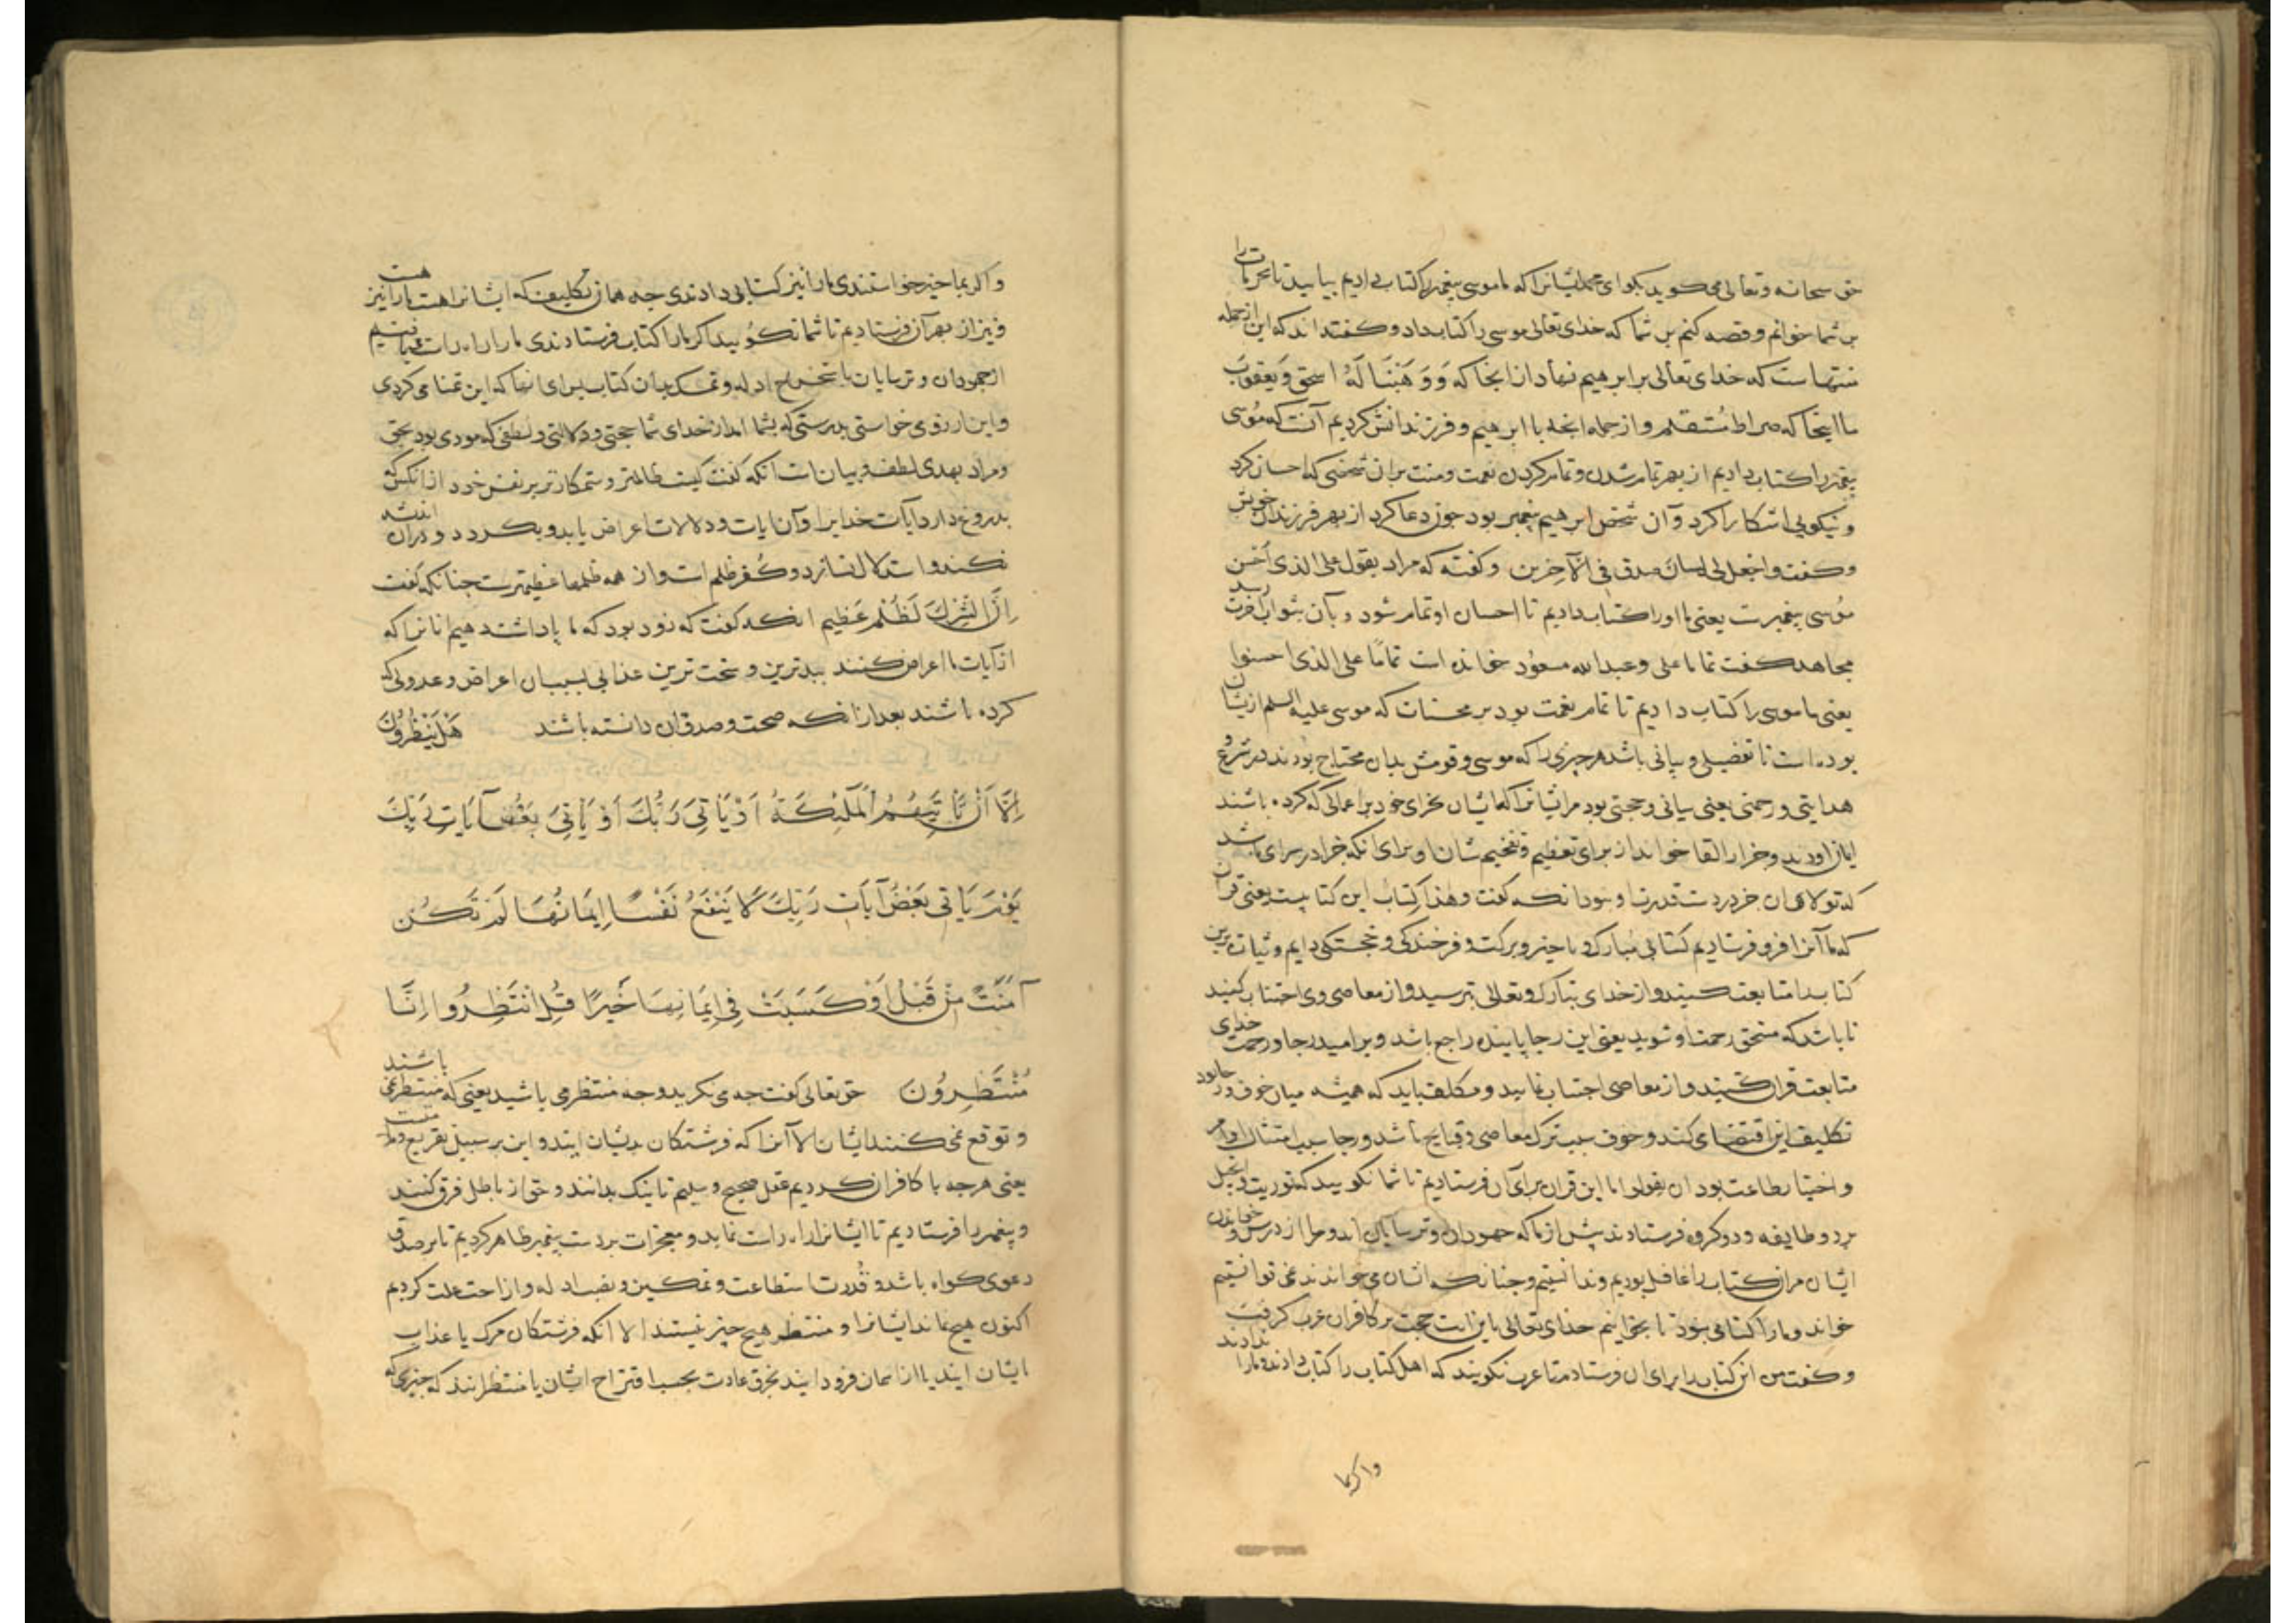 حق سبحانه وتعالی می کوید بکوای محمد ایشانرا که ما موسی پیغمبر را کتاب دادیم بیایید تا محرمات را
بر شما خوانم وقصه کنم بر شما که خدای تعالی موسی را کتاب داد وکفته اند که این ازجمله
منتهاست که خدای تعالی بر ابرهیم نهاد از انجا که وَوَهَبْنَا لَهُ اسحق وَيَعقوبَ
تا اینجا که صراط مُستقیم واز جمله انچه با ابرهیم وفرزندانش کردیم آنست که مُوسی
پیغمبر را کتاب دادیم از بهر تمام شدن وتمام کردن نعمت ومنت بران شخصی که احسان کرد
ونیکویی اشکارا کرد وآن شخص ابرهیم پیغمبر بود جون دعا کرد از بهر فرزندان خویش
وکفت واجعل لی لسان صدق فی الآخرین وکفته که مراد بقول علی الذی احسن
مُوسی پیغمبرست یعنی ما اورا کتاب دادیم تا احسان او تمام شود وبآن بثواب آخرت رسد
مجاهد کفت تماما علی وعبدالله مسعُود خوانده است تمامًا علی الذی احسنوا
یعنی ما موسی را کتاب دادیم تا تمام نعمت بود بر محسنات که موسی علیه السلم ازیشان
بوده است تا تفصیلی وبیانی باشد هر چیزی را که موسی وقومش بدان محتاج بودند در شرع و
هدایتی ورحمتی یعنی بیانی وحجتی بود مرایشانرا که ایشان بجزای خود بر اعمالی که کرده باشند
ایمان اورند وجزا را لقا خواند از برای تعظیم وتفخیم شان او برای انکه جزا در سرای باشد
که تولای ان جز در دست قدرت او نبود انکه کفت وهذا کتابٌ این کتابیست یعنی قران
که ما آنرا فرو فرستادیم کتابی مُبارک وبا خیر وبرکت وفرخندکی وخجستکی دایم وثابت برین
کتاب را متابعت کنید واز خدای تبارک وتعالی بترسید واز معاصی وی اجتناب کنید
تا باشد که مستحق رحمت او شوید یعنی این رجا با بنده راجع باشد وبر امید رجا ورحمت خدای
متابعت قران کنید واز معاصی اجتناب نمایید ومکلف باید که همیشه میان خوف ورجا بود
تکلیف این اقتضا می کند وخوف سبب ترک معاصی وقبایح باشد ورجا سبب امتثال اوامر
واختیار طاعت بود ان تقولوا ما این قران برای آن فرستادیم تا شما نکویید که توریت وانجیل
بر دو طایفه ودو کروه فرستادند پیش از ما که جهودان وترسایان اند وما از درس وخواندن
ایشان مران کتاب را غافل بودیم وندانستیم وجنانکه انشان می خواندند نمی توانستیم
خواند وما را کتابی نبود تا بخوانیم خدای تعالی باین ایت حجت بر کافران عرب کرفت
وکفت من این کتاب را برای ان فرستادم تا عرب نکویند که اهل کتاب را کتاب دادند وما را ندادند
واکر بما
واکر بما خیر خواستندی ما را نیز کتابی دادندی جه همان تکلیف که ایشانرا هست ما را نیز هست
ونیز از بهر آن فرستادیم تا شما نکویید اکر ما را کتاب فرستادندی ما راه راست تر یافتیم
ازجهودان وترسایان باستخراج ادله وتمسک بدان کتاب برای انها که این تمنا می کردی
واین ارزوی خواستی بدرستی که بشما امد از خدای شما حجتی ودلالتی ولطفی که مودی بود بحق
ومراد بهدی لطف وبیان است انکه کفت کیست ظالمتر وستمکارتر بر نفس خود از انکس که
بدروغ دارد آیات خدایرا وآن ایات ودلالات اعراض یابد وبکردد ودران اندیشه
نکند واستدلال نسازد وکُفر ظلم است واز همه ظلمها عظیمترست جنانکه کفت
اِنَّ الشِّرْكَ لَظُلْمٌ عَظِيم انکه کفت که زود بود که ما پاداشت دهیم انانرا که
از آیات ما اعراض کنند ببدترین وسخت ترین عذابی بسبب ان اعراض وعدولی که
کرده باشند بعد از انکه صحت وصدق ان دانسته باشند هَلْ يَنْظُرُونَ
اِلَّا اَنْ تَاْتِيَهُمُ الْمَلٰئِكَةُ اَوْ يَاْتِىَ رَبُّكَ اَوْ يَاْتِىَ بَعْضُ آيَاتِ رَبِّكَ
يَوْمَ يَاْتِى بَعْضُ آيَاتِ رَبِّكَ لَا يَنْفَعُ نَفْسًا اِيمَانُهَا لَمْ تَكُنْ
آمَنَتْ مِنْ قَبْلُ اَوْ كَسَبَتْ فِى اِيمَانِهَا خَيْرًا قُلِ انْتَظِرُوا اِنَّا
مُنْتَظِرُونَ حق تعالی کفت جه می نکرید وجه منتظر می باشید یعنی که منتظر نمی باشند
وتوقع نمی کنند ایشان الا آنرا که فرشتکان بدیشان ایند واین بر سبیل تقریع وملامتست
یعنی هرجه با کافران کردیم عقل صحیح وسلیم تا نیک بدانند وحق از باطل فرق کنند
وپیغمبر را فرستادیم تا ایشانرا راه راست نماید ومعجزات بر دست پیغمبر ظاهر کردیم تا بر صدق
دعوی کواه باشد وقُدرت استطاعت وتمکین ونصب ادله وازاحت علت کردیم
اکنون هیچ نماند ایشانرا ومنتظر هیچ چیز نیستند الا انکه فرشتکان مرک یا عذاب
ایشان ایند یا از اسمان فرود ایند بخرق عادت بحسب اقتراح ایشان یا منتظرانند که چیزی که